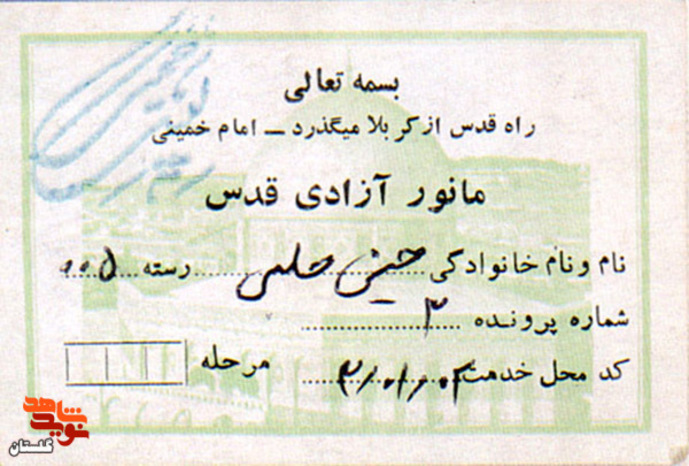 بسمه تعالی
راه قدس از کربلا میگذرد ــ امام خمینی
مانور آزادی قدس
نام و نام خانوادگی حسین حلمی رسته ۰۰۵
شماره پرونده ۳
کد محل خدمت ۳/۰۱/۰۲ مرحله
شاهد
نوید
گلستان